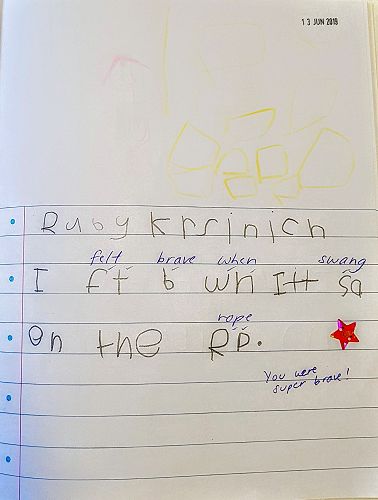 13 JUN 2018
Ruby Krsinich
felt brave when swang
I ft b wn Itt sa
On the Rp.
rope
You were
super brave!